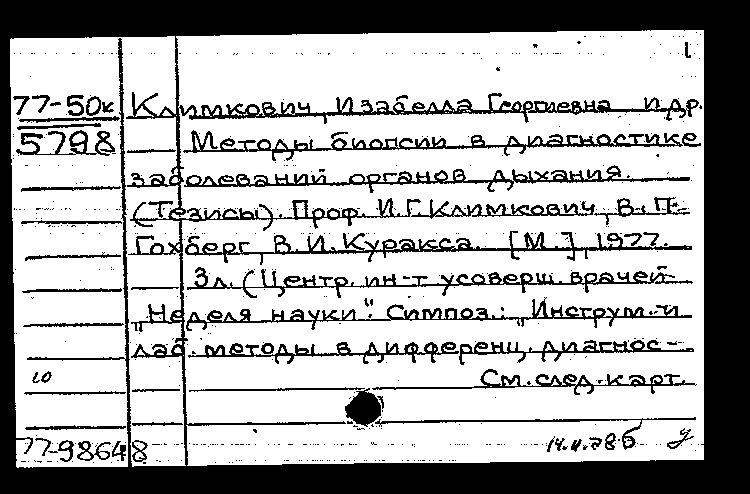 1
77-50к Климкович, Изабелла Георгиевна и др.
5798 Методы биопсии в диагностике
заболеваний органов дыхания.
(Тезисы). Проф. И.Г. Климкович, В. П.
Гохберг, В. И. Куракса. [М.], 1977.
3л. (Центр. ин-т усоверш. врачей
"Неделя науки". Симпоз.: "Инструм. и
лаб. методы в дифференц. диагнос-
10 См. след. карт.
77-98648